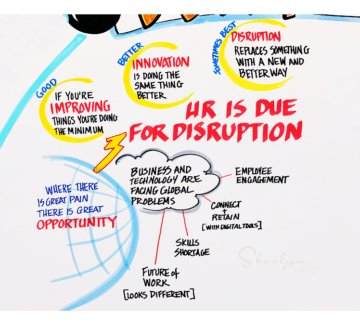 GOOD
IF YOU'RE
IMPROVING
THINGS YOU'RE DOING
THE MINIMUM
BETTER
INNOVATION
IS DOING THE
SAME THING
BETTER
SOMETIMES BEST
DISRUPTION
REPLACES SOMETHING
WITH A NEW AND
BETTER WAY
HR IS DUE
FOR DISRUPTION
WHERE THERE
IS GREAT PAIN
THERE IS GREAT
OPPORTUNITY
BUSINESS AND
TECHNOLOGY ARE
FACING GLOBAL
PROBLEMS
EMPLOYEE
ENGAGEMENT
CONNECT
+
RETAIN
[WITH DIGITAL TOOLS]
SKILLS
SHORTAGE
FUTURE of
WORK
[LOOKS DIFFERENT]